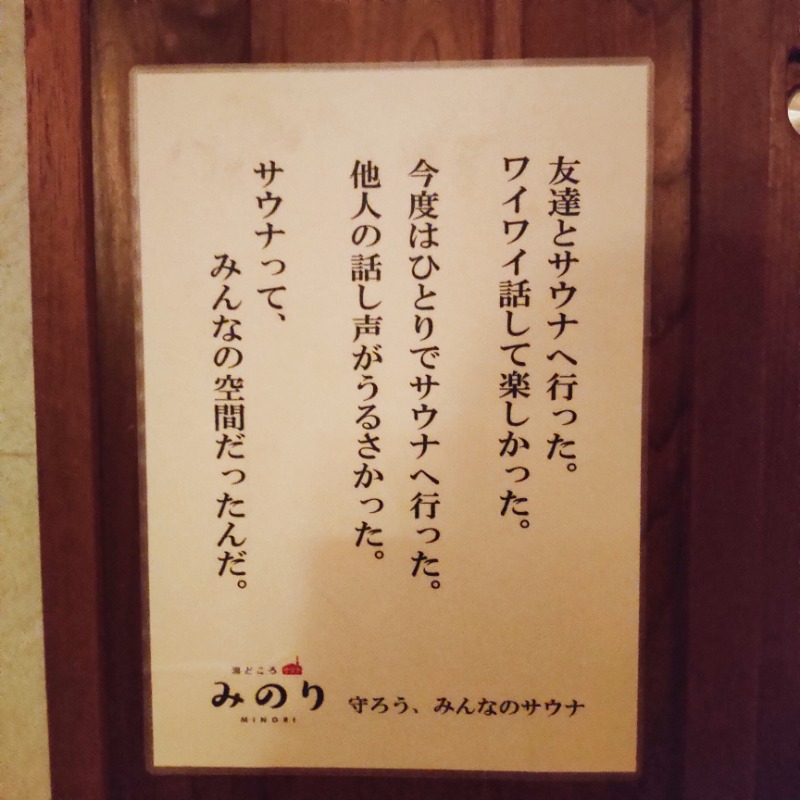 友達とサウナへ行った。
ワイワイ話して楽しかった。
今度はひとりでサウナへ行った。
他人の話し声がうるさかった。
サウナって、
みんなの空間だったんだ。
湯どころ
みのり
MINORI
守ろう、みんなのサウナ